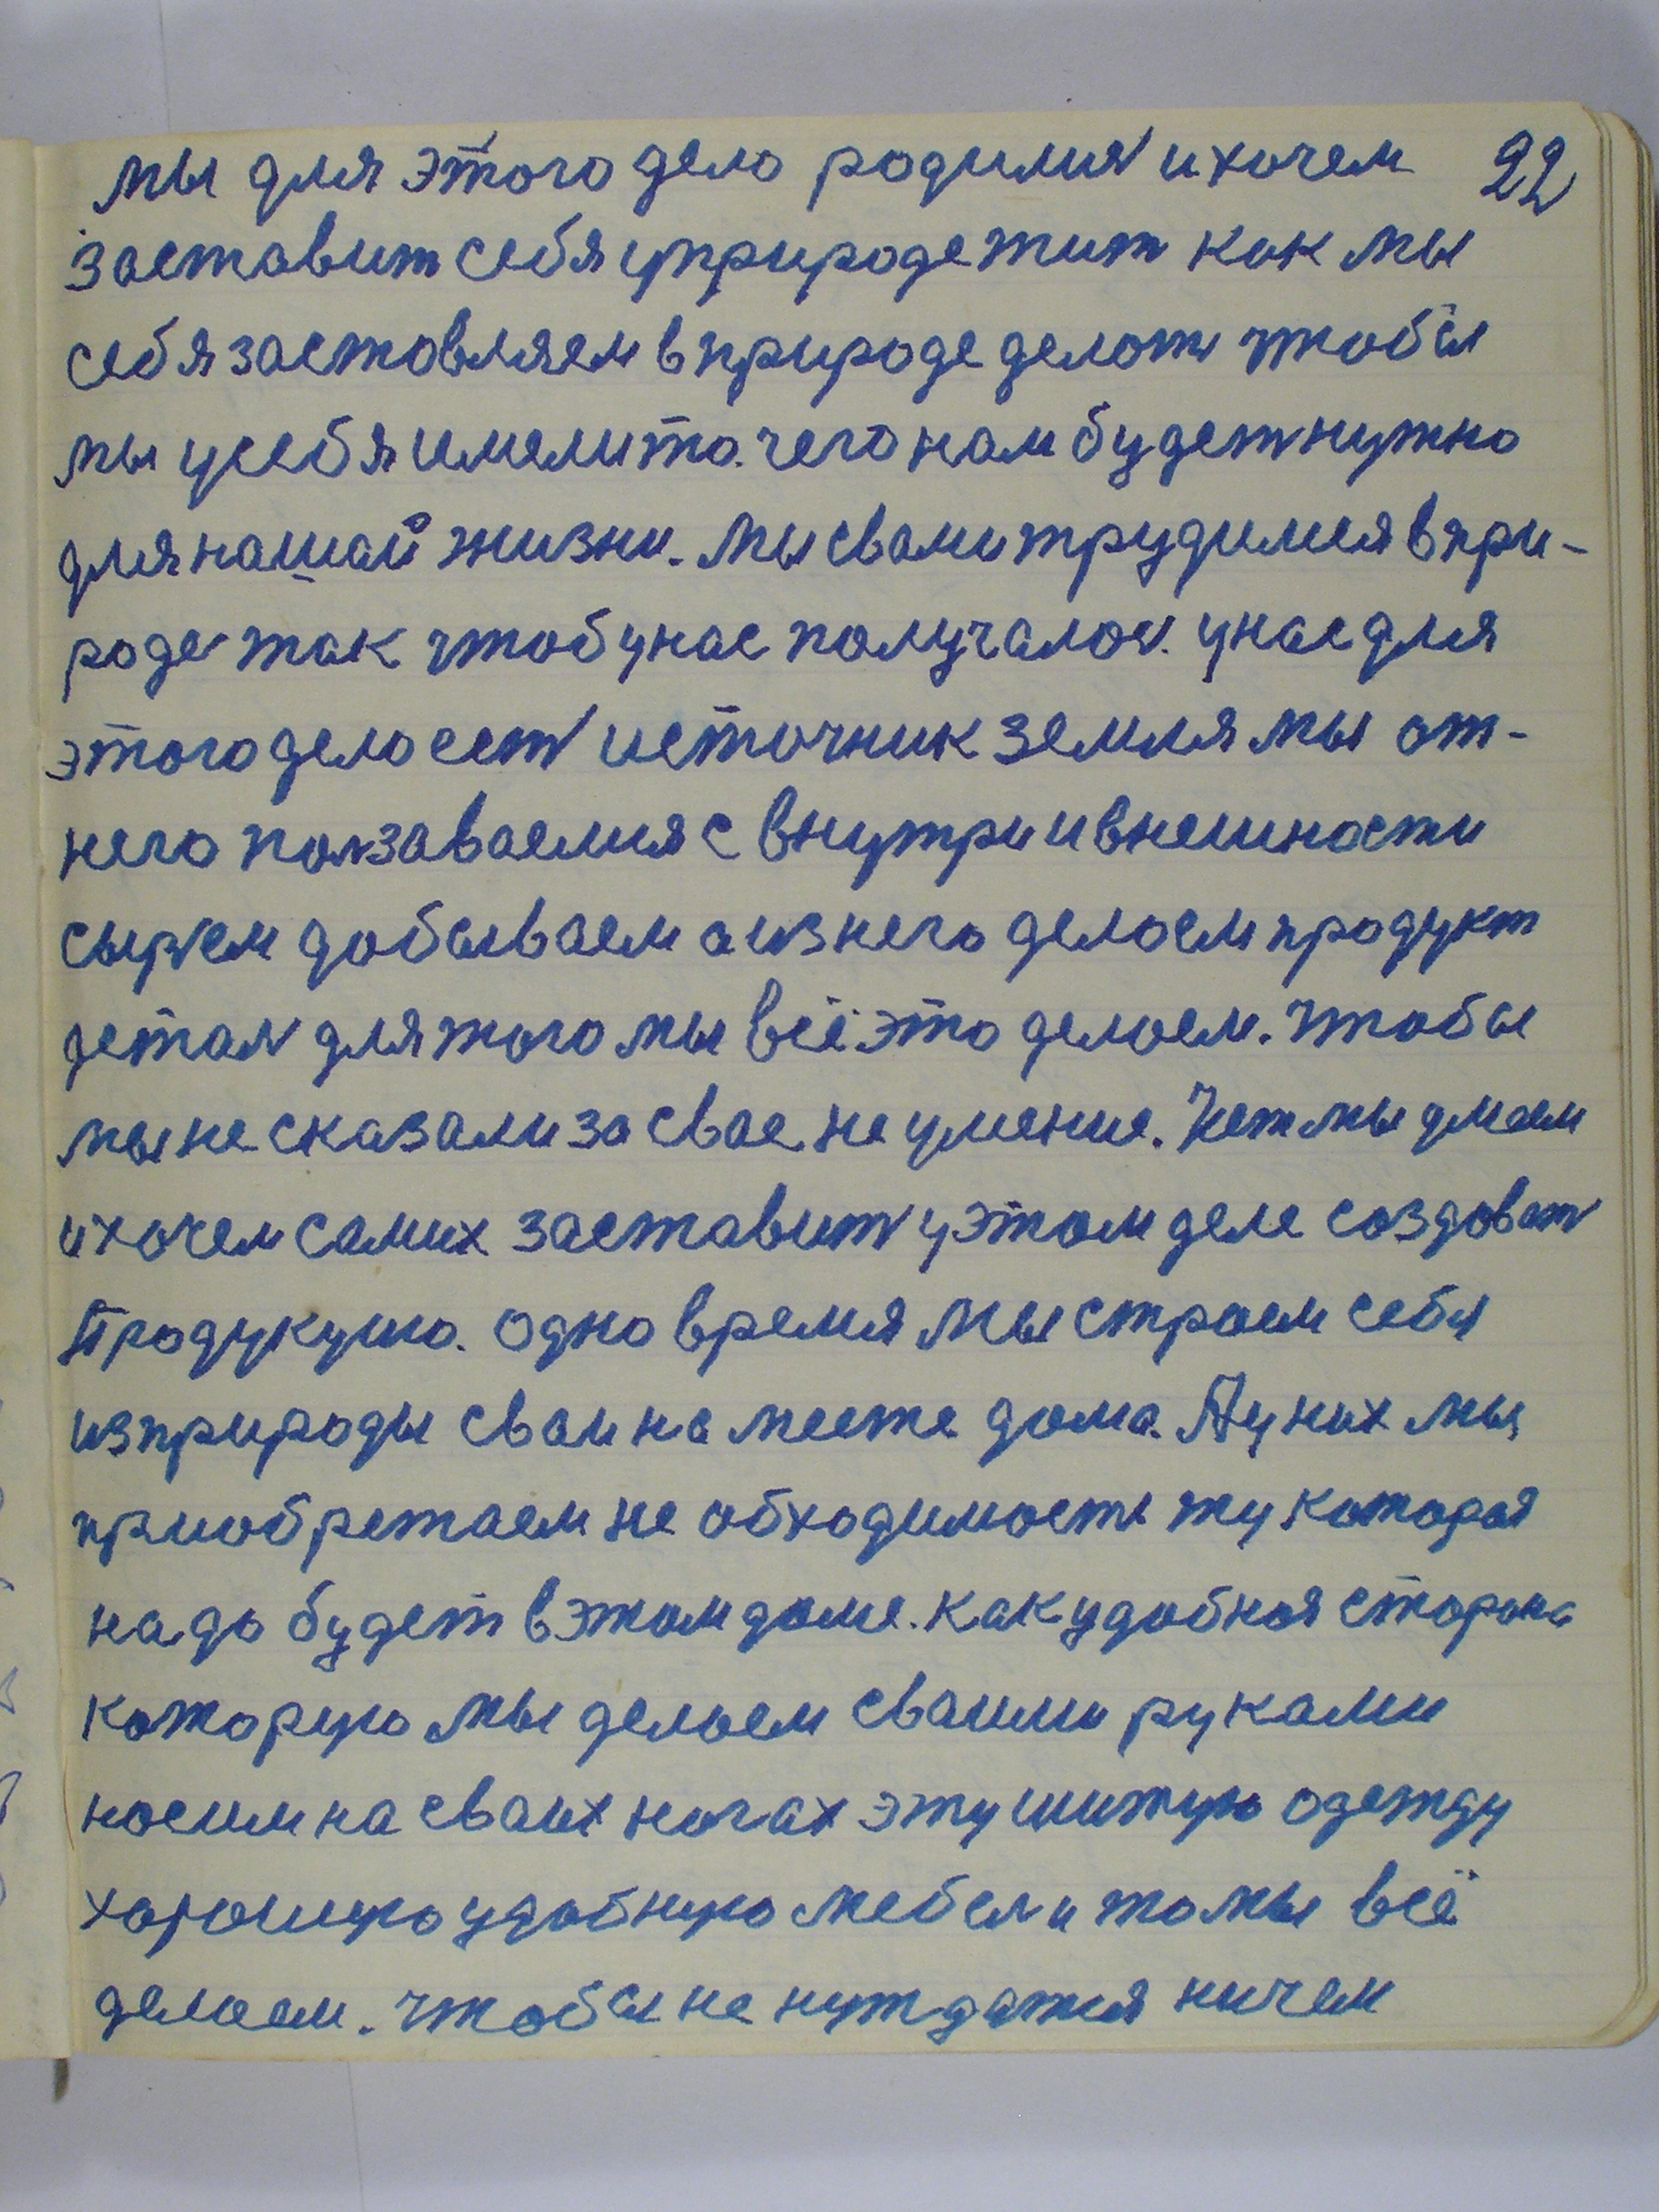 мы для этого дело родимся и хочем 22
заставит себя у природе жит как мы
себя заставляем в природе делать чтобы
мы у себя имели то. чего нам будет нужно
для нашай жизни. Мы свами трудимся в при-
роде так чтоб у нас получалос. у нас для
этого дело ест источник земля мы от-
него ползаваемся с внутри и внешности
сырьем добываем а из него делаем продукт
детал для того мы всё это делаем. чтобы
мы не сказали за свае не умение. Нет мы умеем
и хочем самих заставит у этом деле создоват
Продукцию. Одно время мы строем себя
из природы сваи на месте дома. А у них мы
приобретаем не обходимость ту которая
надо будет в этом доме. как удобная сторона
которую мы делаем сваими руками
носим на сваих ногах эту шитую одежду
хорошую удобную мебел и то мы всё
делаем. чтобы не нуждатся ничем